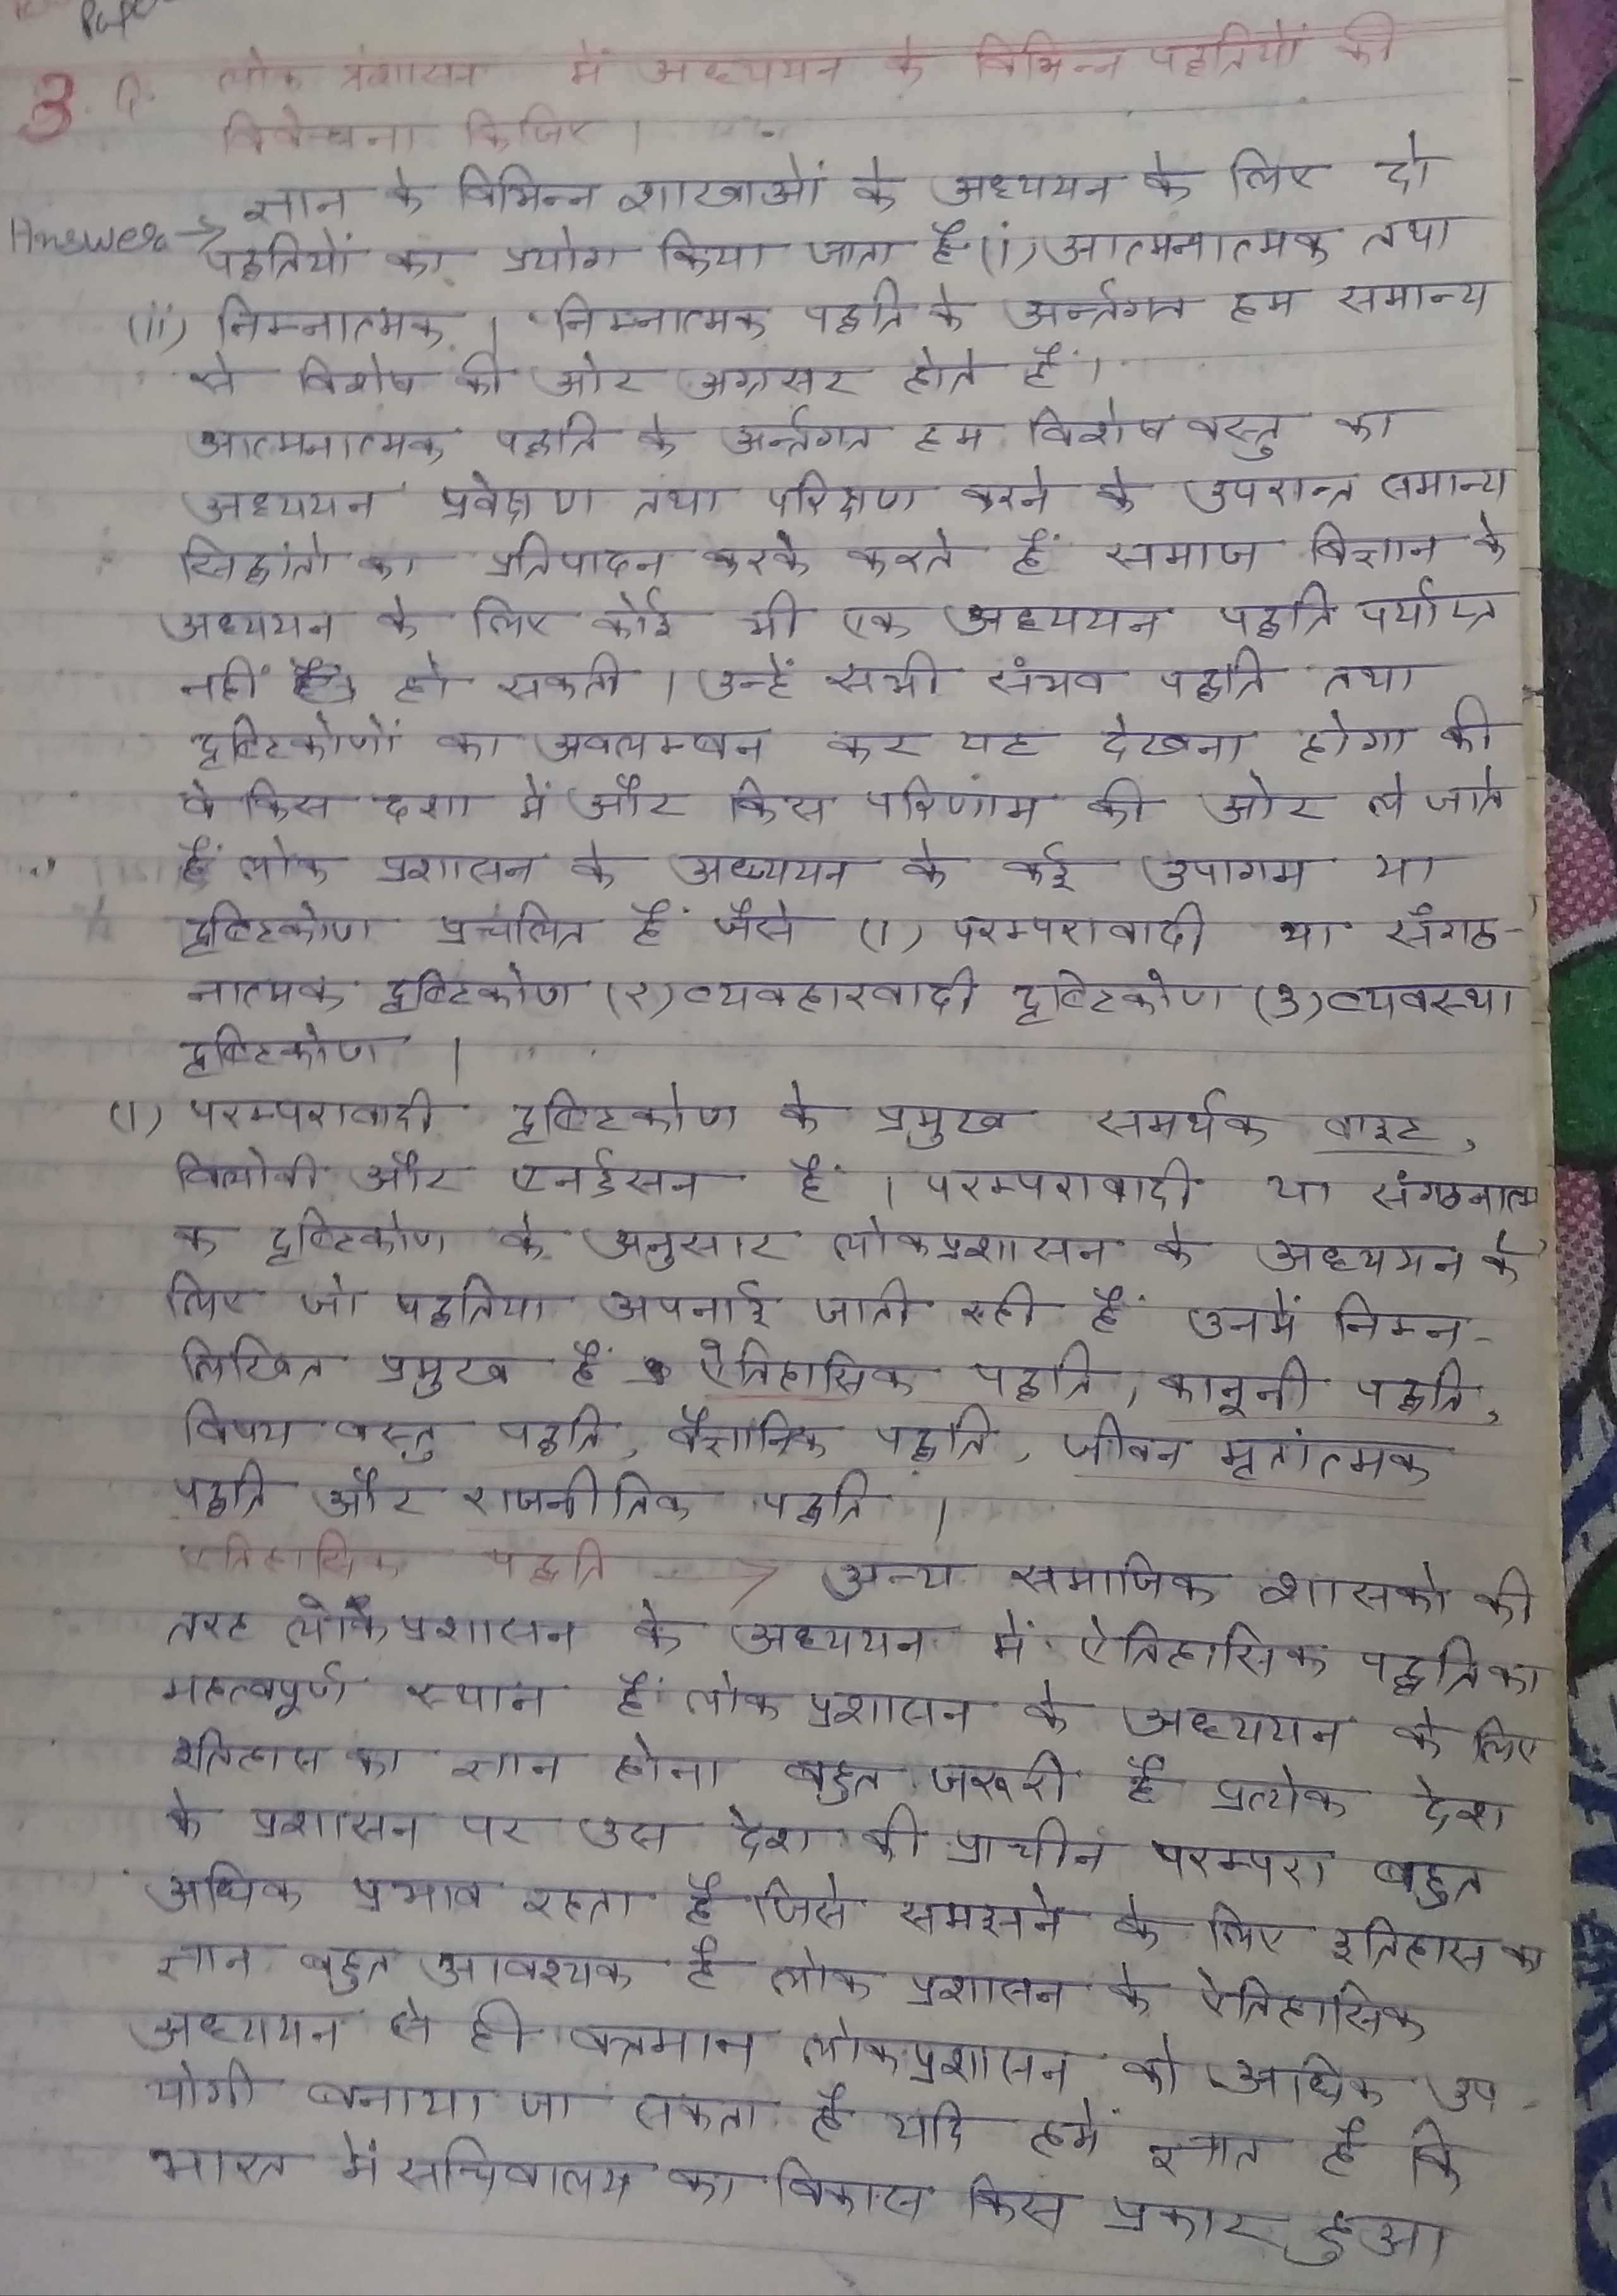 Pape
3. Q. लोक प्रशासन में अध्ययन के विभिन्न पद्धतियों की
विवेचना किजिए।
ज्ञान के विभिन्न शाखाओं के अध्ययन के लिए दो
Answer → पद्धतियों का प्रयोग किया जाता है (i) आत्मनात्मक तथा
(ii) निम्नात्मक। निम्नात्मक पद्धति के अर्न्तगत हम समान्य
से विशेष की ओर अग्रसर होते हैं।
आत्मनात्मक पद्धति के अर्न्तगत हम विशेष वस्तु का
अध्ययन प्रवेक्षण तथा परिक्षण करने के उपरान्त समान्य
सिद्धांतो का प्रतिपादन करके करते हैं समाज विज्ञान के
अध्ययन के लिए कोई भी एक अध्ययन पद्धति पर्याप्त
नहीं हो सकती। उन्हें सभी संभव पद्धति तथा
दृष्टिकोणों का अवलम्बन कर यह देखना होगा की
वे किस दशा में और किस परिणाम की ओर ले जाते
हैं लोक प्रशासन के अध्ययन के कई उपागम या
दृष्टिकोण प्रचलित हैं जैसे (1) परम्परावादी या संगठ-
नात्मक दृष्टिकोण (२) व्यवहारवादी दृष्टिकोण (3) व्यवस्था
दृष्टिकोण।
(1) परम्परावादी दृष्टिकोण के प्रमुख समर्थक वाइट,
विलोवी और एनर्डसन हैं। परम्परावादी या संगठनात्म
क दृष्टिकोण के अनुसार लोकप्रशासन के अध्ययन के
लिए जो पद्धतिया अपनाई जाती रही हैं उनमें निम्न-
लिखित प्रमुख हैं ऐतिहासिक पद्धति, कानूनी पद्धति,
विषय वस्तु पद्धति, वैज्ञानिक पद्धति, जीवन मृतांत्मक
पद्धति और राजनीतिक पद्धति।
एतिहासिक पद्धति → अन्य समाजिक शासको की
तरह लोकप्रशासन के अध्ययन में ऐतिहासिक पद्धति का
महत्वपूर्ण स्थान हैं लोक प्रशासन के अध्ययन के लिए
इतिहास का ज्ञान होना बहुत जरूरी है प्रत्येक देश
के प्रशासन पर उस देश की प्राचीन परम्परा बहुत
अधिक प्रभाव रहता है जिसे समझने के लिए इतिहास का
ज्ञान बहुत आवश्यक है लोक प्रशासन के ऐतिहासिक
अध्ययन से ही वत्रमान लोकप्रशासन को अधिक उप-
योगी बनाया जा सकता है यदि हमें ज्ञात है कि
भारत में सचिवालय का विकास किस प्रकार हुआ